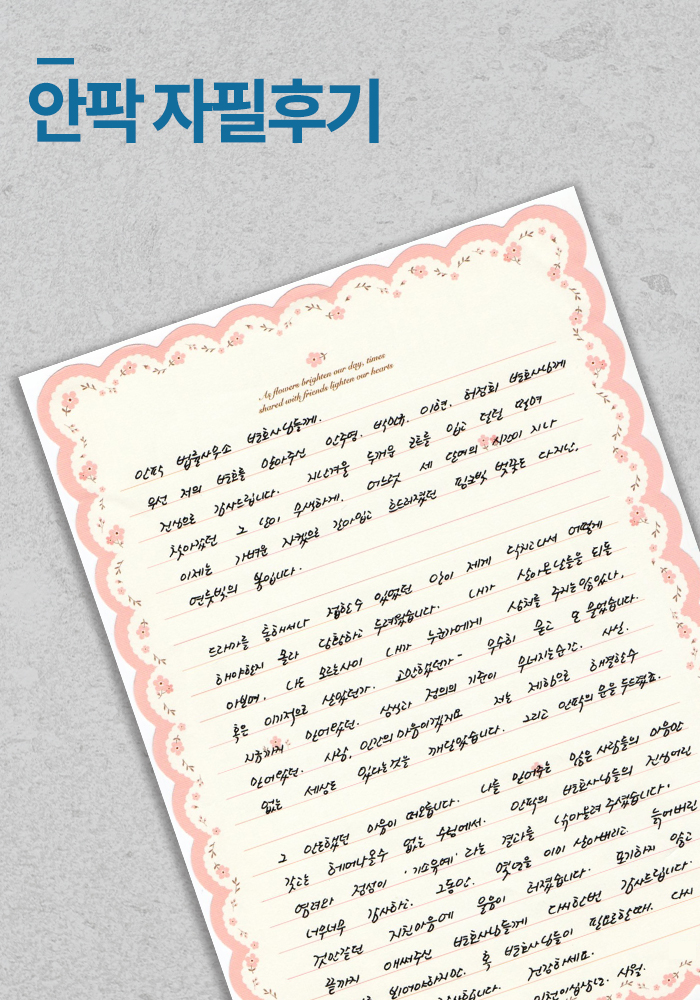 안팍 자필후기
As flowers brighten our day, times
shared with friends lighten our hearts
안팍 법률사무소 변호사님들께.
우선 저의 변호를 맡아주신 안주영, 박민규, 이현, 허정회 변호사님께
진심으로 감사드립니다. 지난겨울 두꺼운 코트를 입고 덜덜 떨며
찾아갔던 그 날이 무색하게, 어느덧 세 달여의 시간이 지나
이제는 가벼운 자켓으로 갈아입고 흐드러졌던 핑크빛 벚꽃도 다지난,
연둣빛의 봄입니다.
드라마를 통해서나 접할수 있었던 일이 제게 닥치고나서 어떻게
해야할지 몰라 당황하고 두려웠습니다. 내가 살아온날들을 되돌
아보며, 나도 모르는사이 내가 누군가에게 상처를 주지는않았나,
혹은 이기적으로 살았던가. 고민했던가- 우수히 묻고 또 물었습니다.
지금까지 믿어왔던, 상식과 정의의 기준이 무너지는순간, 사실,
믿어왔던, 사람, 인간의 마음이겠지요 저는 제힘으로 해결할수
없는 세상도 있다는것을 깨달았습니다. 그리고 안팍의 문을 두드렸죠.
그 간절했던 마음이 떠오릅니다. 나를 믿어주는 많은 사람들의 마음만
갖고는 헤어나올수 없는 수렁에서, 안팍의 변호사님들의 진심어린
염려와 정성이 '기소유예' 라는 결과를 낚아올려 주셨습니다.
너무너무 감사하고, 그동안, 옛면을 이미 잃어버리고 늙어버린
것만같던 지친마음에 울음이 터졌습니다. 포기하지 않고
끝까지 애써주신 변호사님들께 다시한번 감사드립니다.
되어야하지만, 혹 변호사님들이 필요할때, 다시
건강하세요.